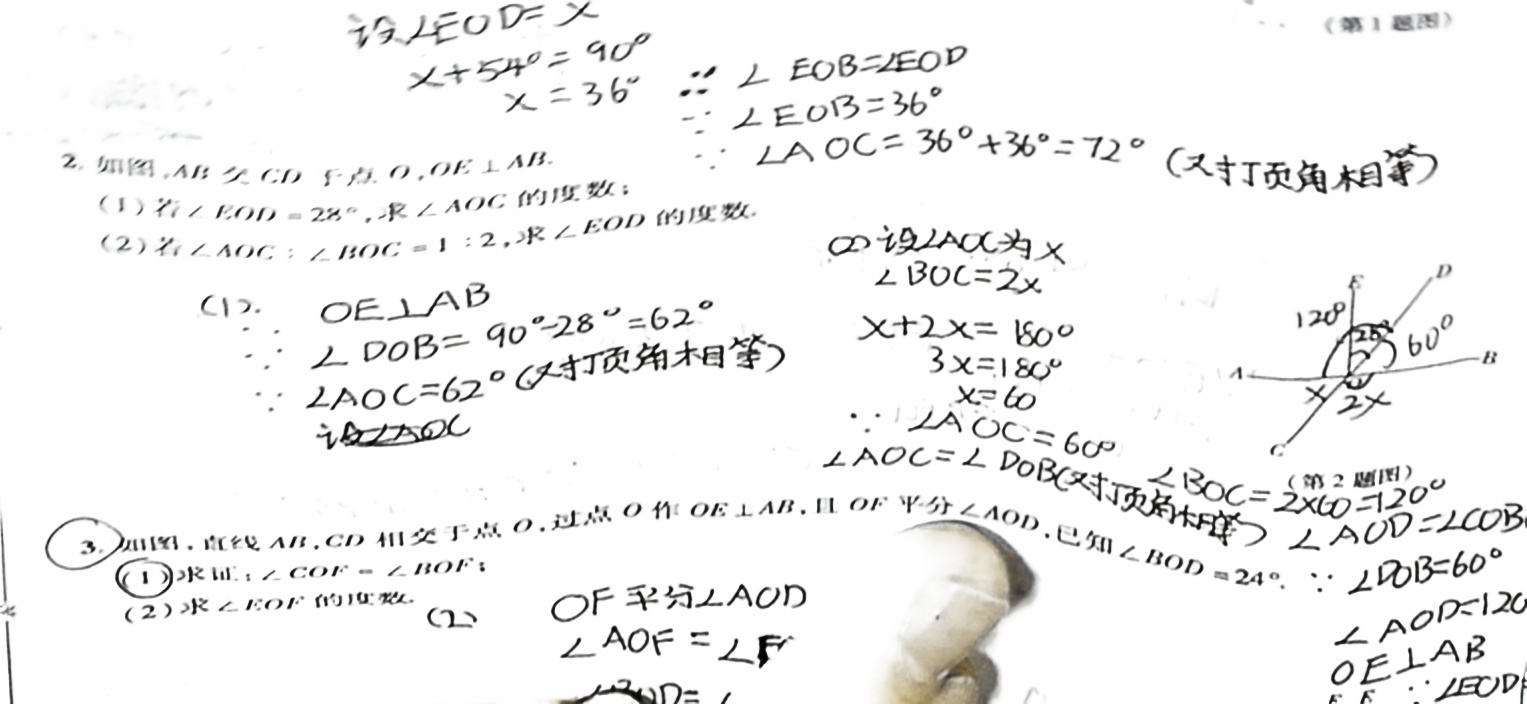 设∠EOD=x
(第1题图)
x+54°=90°
x=36°
∵ ∠EOB=∠EOD
∵ ∠EOB=36°
∵ ∠AOC=36°+36°=72° (对顶角相等)
2. 如图,AB 交 CD 于点 O,OE⊥AB.
(1)若∠EOD=28°,求∠AOC 的度数;
(2)若∠AOC:∠BOC=1:2,求∠EOD 的度数.
(1). OE⊥AB
∵ ∠DOB=90°-28°=62°
∵ ∠AOC=62°(对顶角相等)
设∠AOC
(2)设∠AOC为x
∠BOC=2x
x+2x=180°
3x=180°
x=60
∵ ∠AOC=60°
∠BOC=2x60=120°
∠AOC=∠DOB(对顶角相等)
∠AOD=∠COB
∵ ∠DOB=60°
∠AOD=120
OE⊥AB
∵ ∠EOD
E
D
120°
28°
60°
A
B
x
2x
C
(第2题图)
3. 如图,直线 AB,CD 相交于点 O,过点 O 作 OE⊥AB,且 OF 平分∠AOD,已知∠BOD=24°.
(1)求证:∠COF=∠BOF;
(2)求∠EOF 的度数.
(2) OF平分∠AOD
∠AOF=∠F